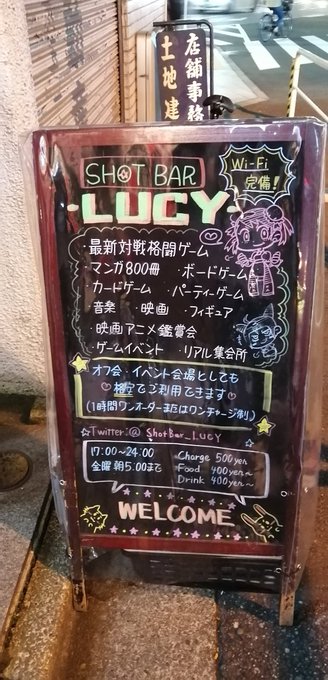 店舗事務
土地建
SHOT BAR
Wi-Fi
完備!
LUCY
・最新対戦格闘ゲーム
・マンガ800冊 ・ボードゲーム
・カードゲーム ・パーティーゲーム
・音楽 ・映画 ・フィギュア
・映画アニメ鑑賞会
・ゲームイベント ・リアル集会所
オフ会・イベント会場としても
♡格安でご利用できます♡
(1時間ワンオーダーまたはワンチャージ制)
☆Twitter:@ ShotBar_LUCY
17:00~24:00
金曜 朝5:00まで
Charge 500yen
Food 400yen~
Drink 400yen~
WELCOME